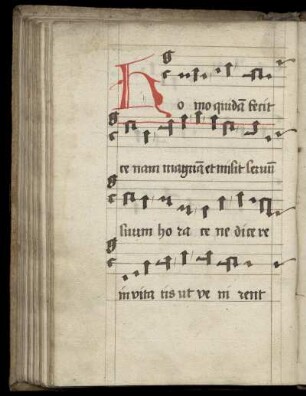 Ho mo quidā fecit
ce nam magnā et misit seruū
suum ho ra ce ne dice re
inuita tis ut ve ni rent